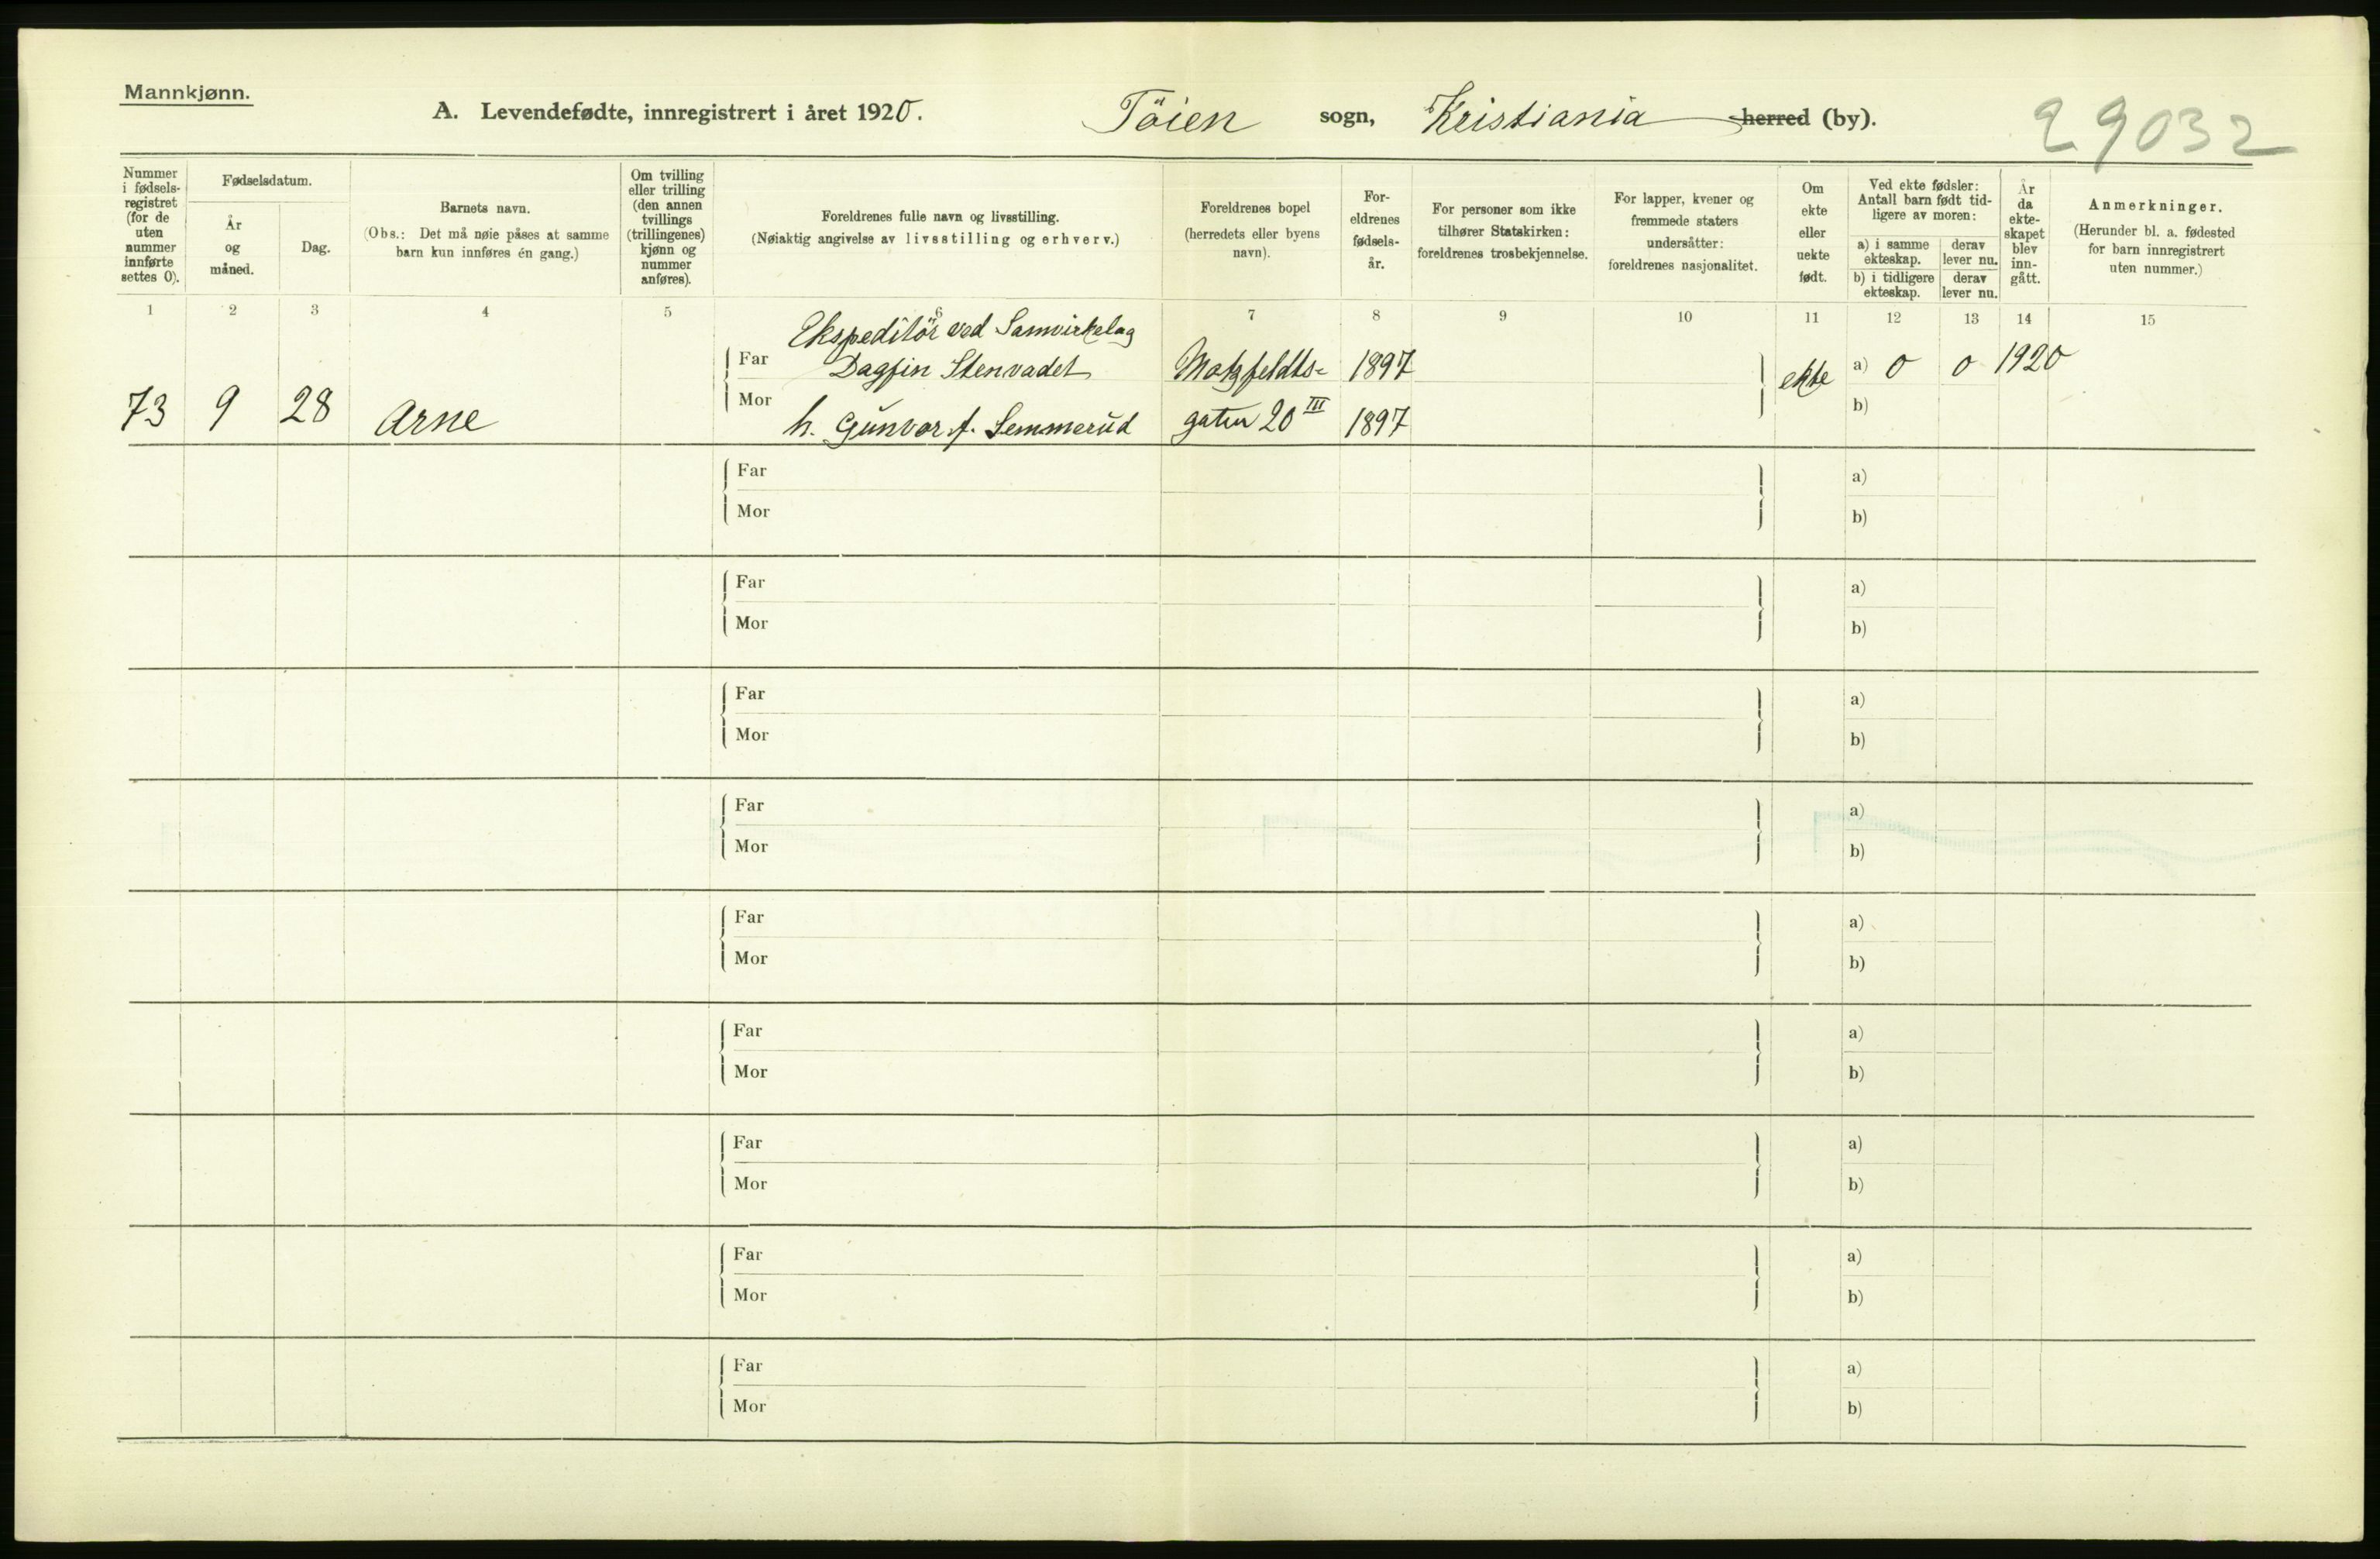 Mannkjønn.
A. Levendefødte, innregistrert i året 1920. Töien sogn, Kristiania herred (by).
29032
Nummer i fødsels-registret (for de uten nummer innførte settes 0).
Fødselsdatum.
År og måned.
Dag.
Barnets navn.
(Obs.: Det må nøie påses at samme barn kun innføres én gang.)
Om tvilling eller trilling (den annen tvillings (trillingenes) kjønn og nummer anføres).
Foreldrenes fulle navn og livsstilling.
(Nøiaktig angivelse av livsstilling og erhverv.)
Foreldrenes bopel (herredets eller byens navn).
For-eldrenes fødsels-år.
For personer som ikke tilhører Statskirken: foreldrenes trosbekjennelse.
For lapper, kvener og fremmede staters undersåtter: foreldrenes nasjonalitet.
Om ekte eller uekte født.
Ved ekte fødsler: Antall barn født tid-ligere av moren:
a) i samme ekteskap.
derav lever nu.
b) i tidligere ekteskap.
derav lever nu.
År da ekte-skapet blev inn-gått.
Anmerkninger.
(Herunder bl. a. fødested for barn innregistrert uten nummer.)
1 2 3 4 5 6 7 8 9 10 11 12 13 14 15
Ekspeditör ved Samvirkelag
Far Dagfin Stenvadet Motzfeldts- 1897 ekte a) 0 0 1920
73 9 28 Arne
Mor h. Gunvor f. Semmerud gaten 20 III 1897 b)
Far a)
Mor b)
Far a)
Mor b)
Far a)
Mor b)
Far a)
Mor b)
Far a)
Mor b)
Far a)
Mor b)
Far a)
Mor b)
Far a)
Mor b)
Far a)
Mor b)